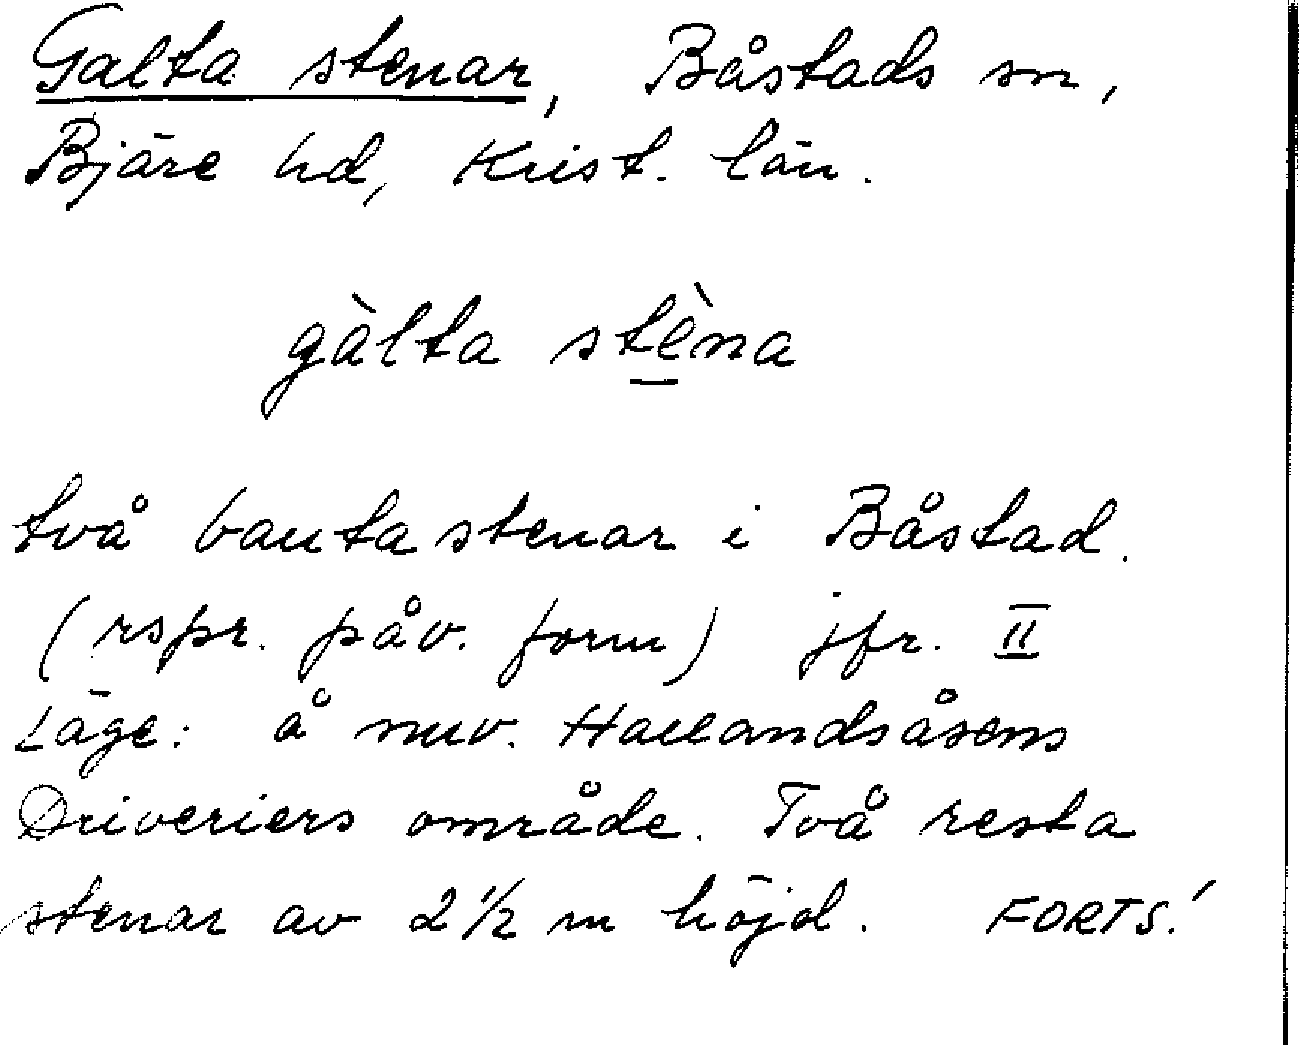 Galta stenar, Båstads sn,
Bjäre hd, Krist. län.
gàlta stèna
två bautastenar i Båstad.
(rspr. påv. form) jfr. II
Läge: å nuv. Hallandsåsens
Driveriers område. Två resta
stenar av 2 1/2 m höjd. FORTS.!